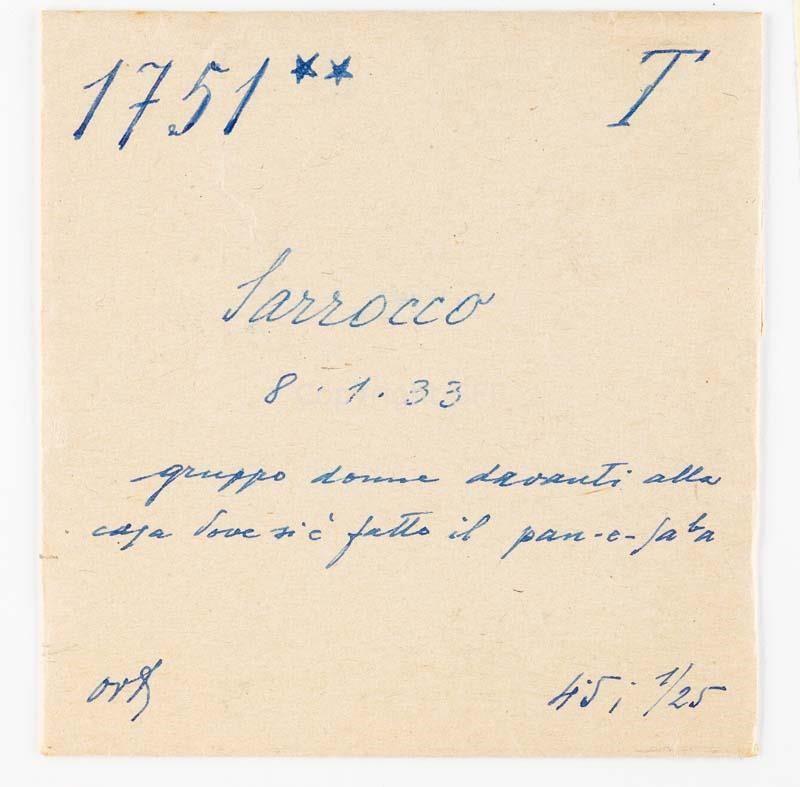 1751** T
Sarrocco
8.1.33
gruppo donne davanti alla
casa dove si è fatto il pan-e-saba
45; 1/25